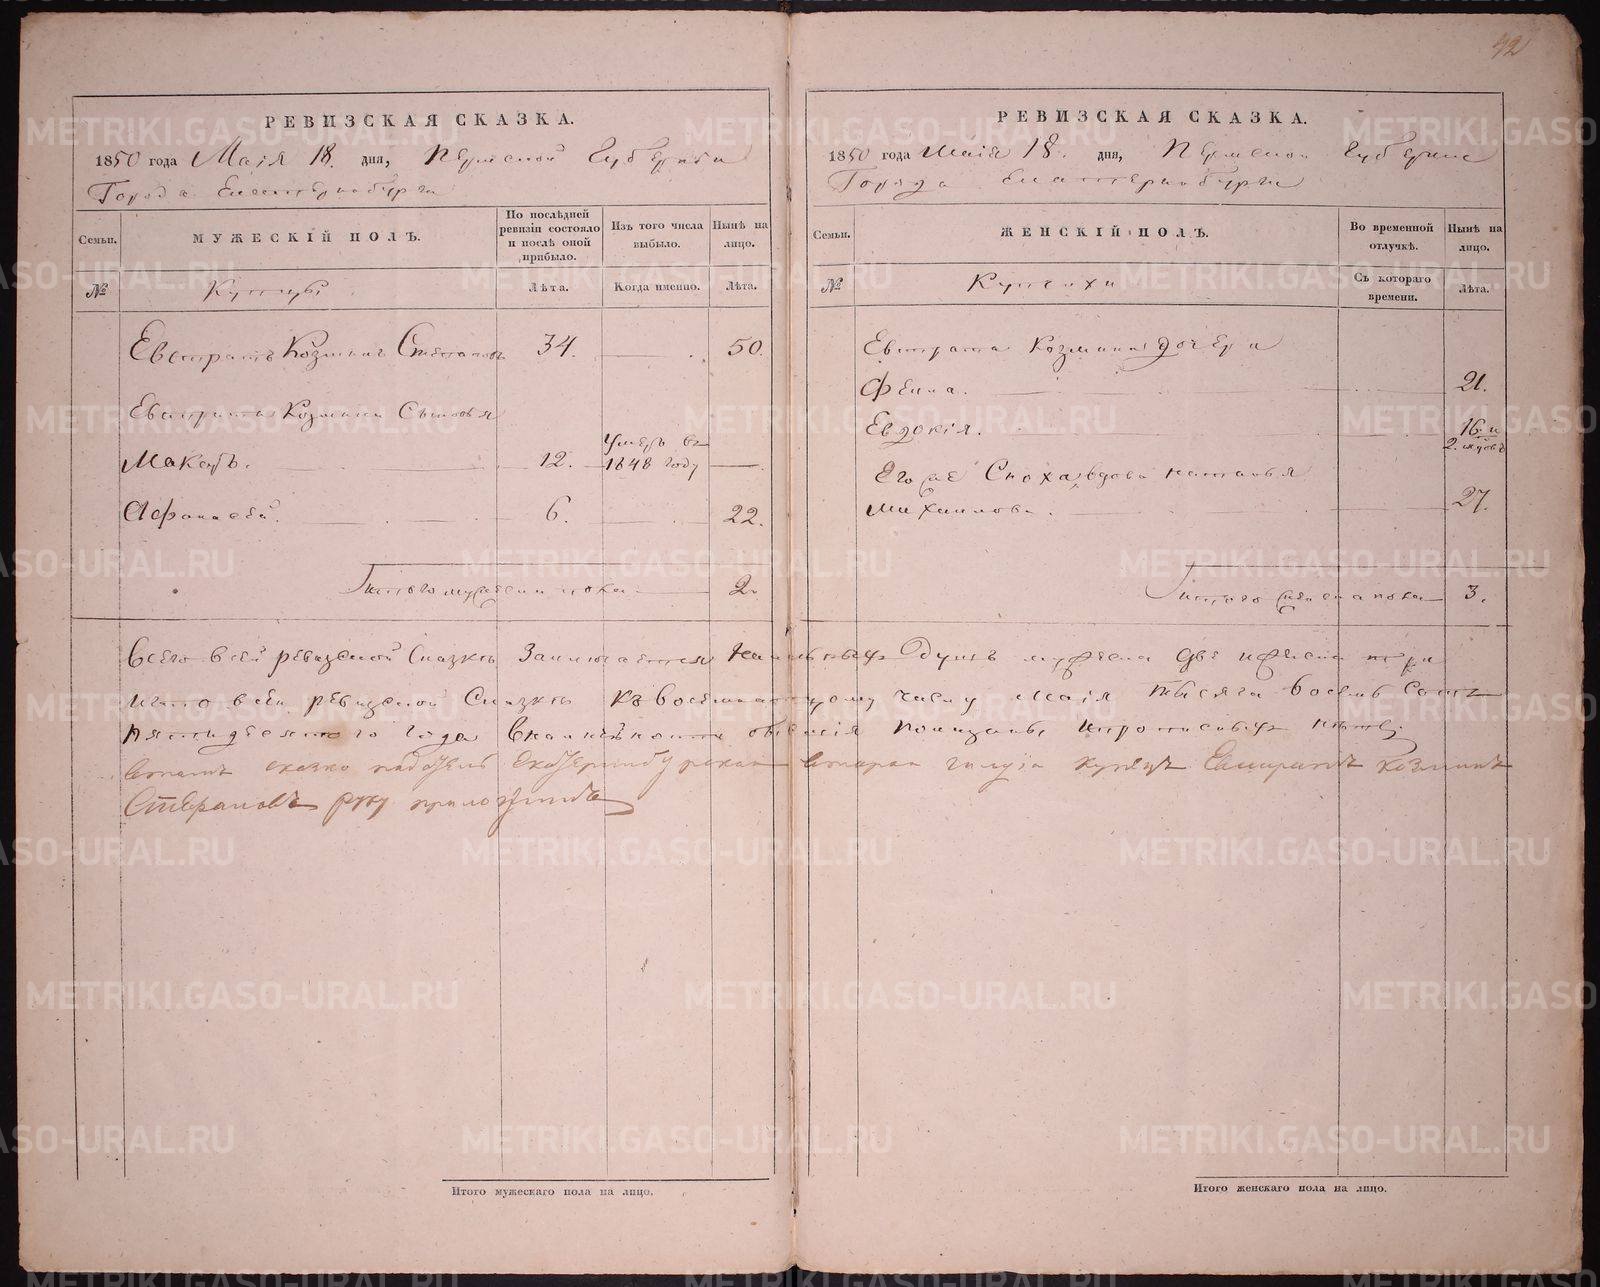 42
РЕВИЗСКАЯ СКАЗКА.
1850 года Маія 18. дня, Пермской Губерніи
Города Екатеринбурга
Семьи.
МУЖЕСКІЙ ПОЛЪ.
По послѣдней ревизіи состояло и послѣ оной прибыло.
Изъ того числа выбыло.
Нынѣ на лицо.
№
Купцы
Лѣта.
Когда именно.
Лѣта.
Евстратъ Козминъ Степановъ 34. 50.
Евстрата Козмина Сыновья
12. Умеръ въ 1848 году
6. 22.
Итого мужеска пола 2.
РЕВИЗСКАЯ СКАЗКА.
1850 года Маія 18. дня, Пермской Губерніи
Города Екатеринбурга
Семьи.
ЖЕНСКІЙ ПОЛЪ.
Во временной отлучкѣ.
Нынѣ на лицо.
№
Купчихи
Съ котораго времени.
Лѣта.
Евстрата Козмина дочери
21.
Евдокія. 16. и 2. мѣс
Его же Сноха вдова Наталья
Михаилова. 27.
Итого женска пола 3.
Всего в сей ревизской Сказкѣ Заключается душъ мужеска две женска три
и что в сей ревизской Сказкѣ къ восемнатцатому числу Маія тысяча восемь сотъ
пятидесятого года
сказке Екатеринбургской второй гилдіи купецъ Евстратъ Козминъ
руку приложилъ
Итого мужескаго пола на лицо.
Итого женскаго пола на лицо.
METRIKI.GASO-URAL.RU